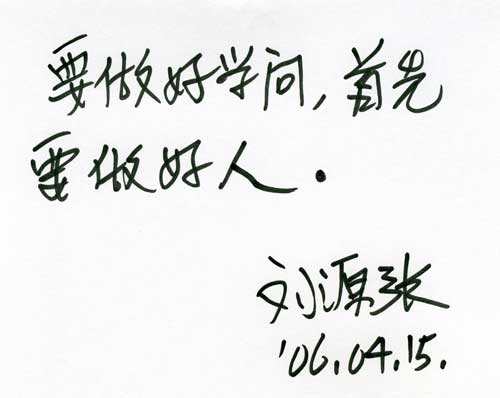 要做好学问，首先
要做好人．
刘源张
'06.04.15.